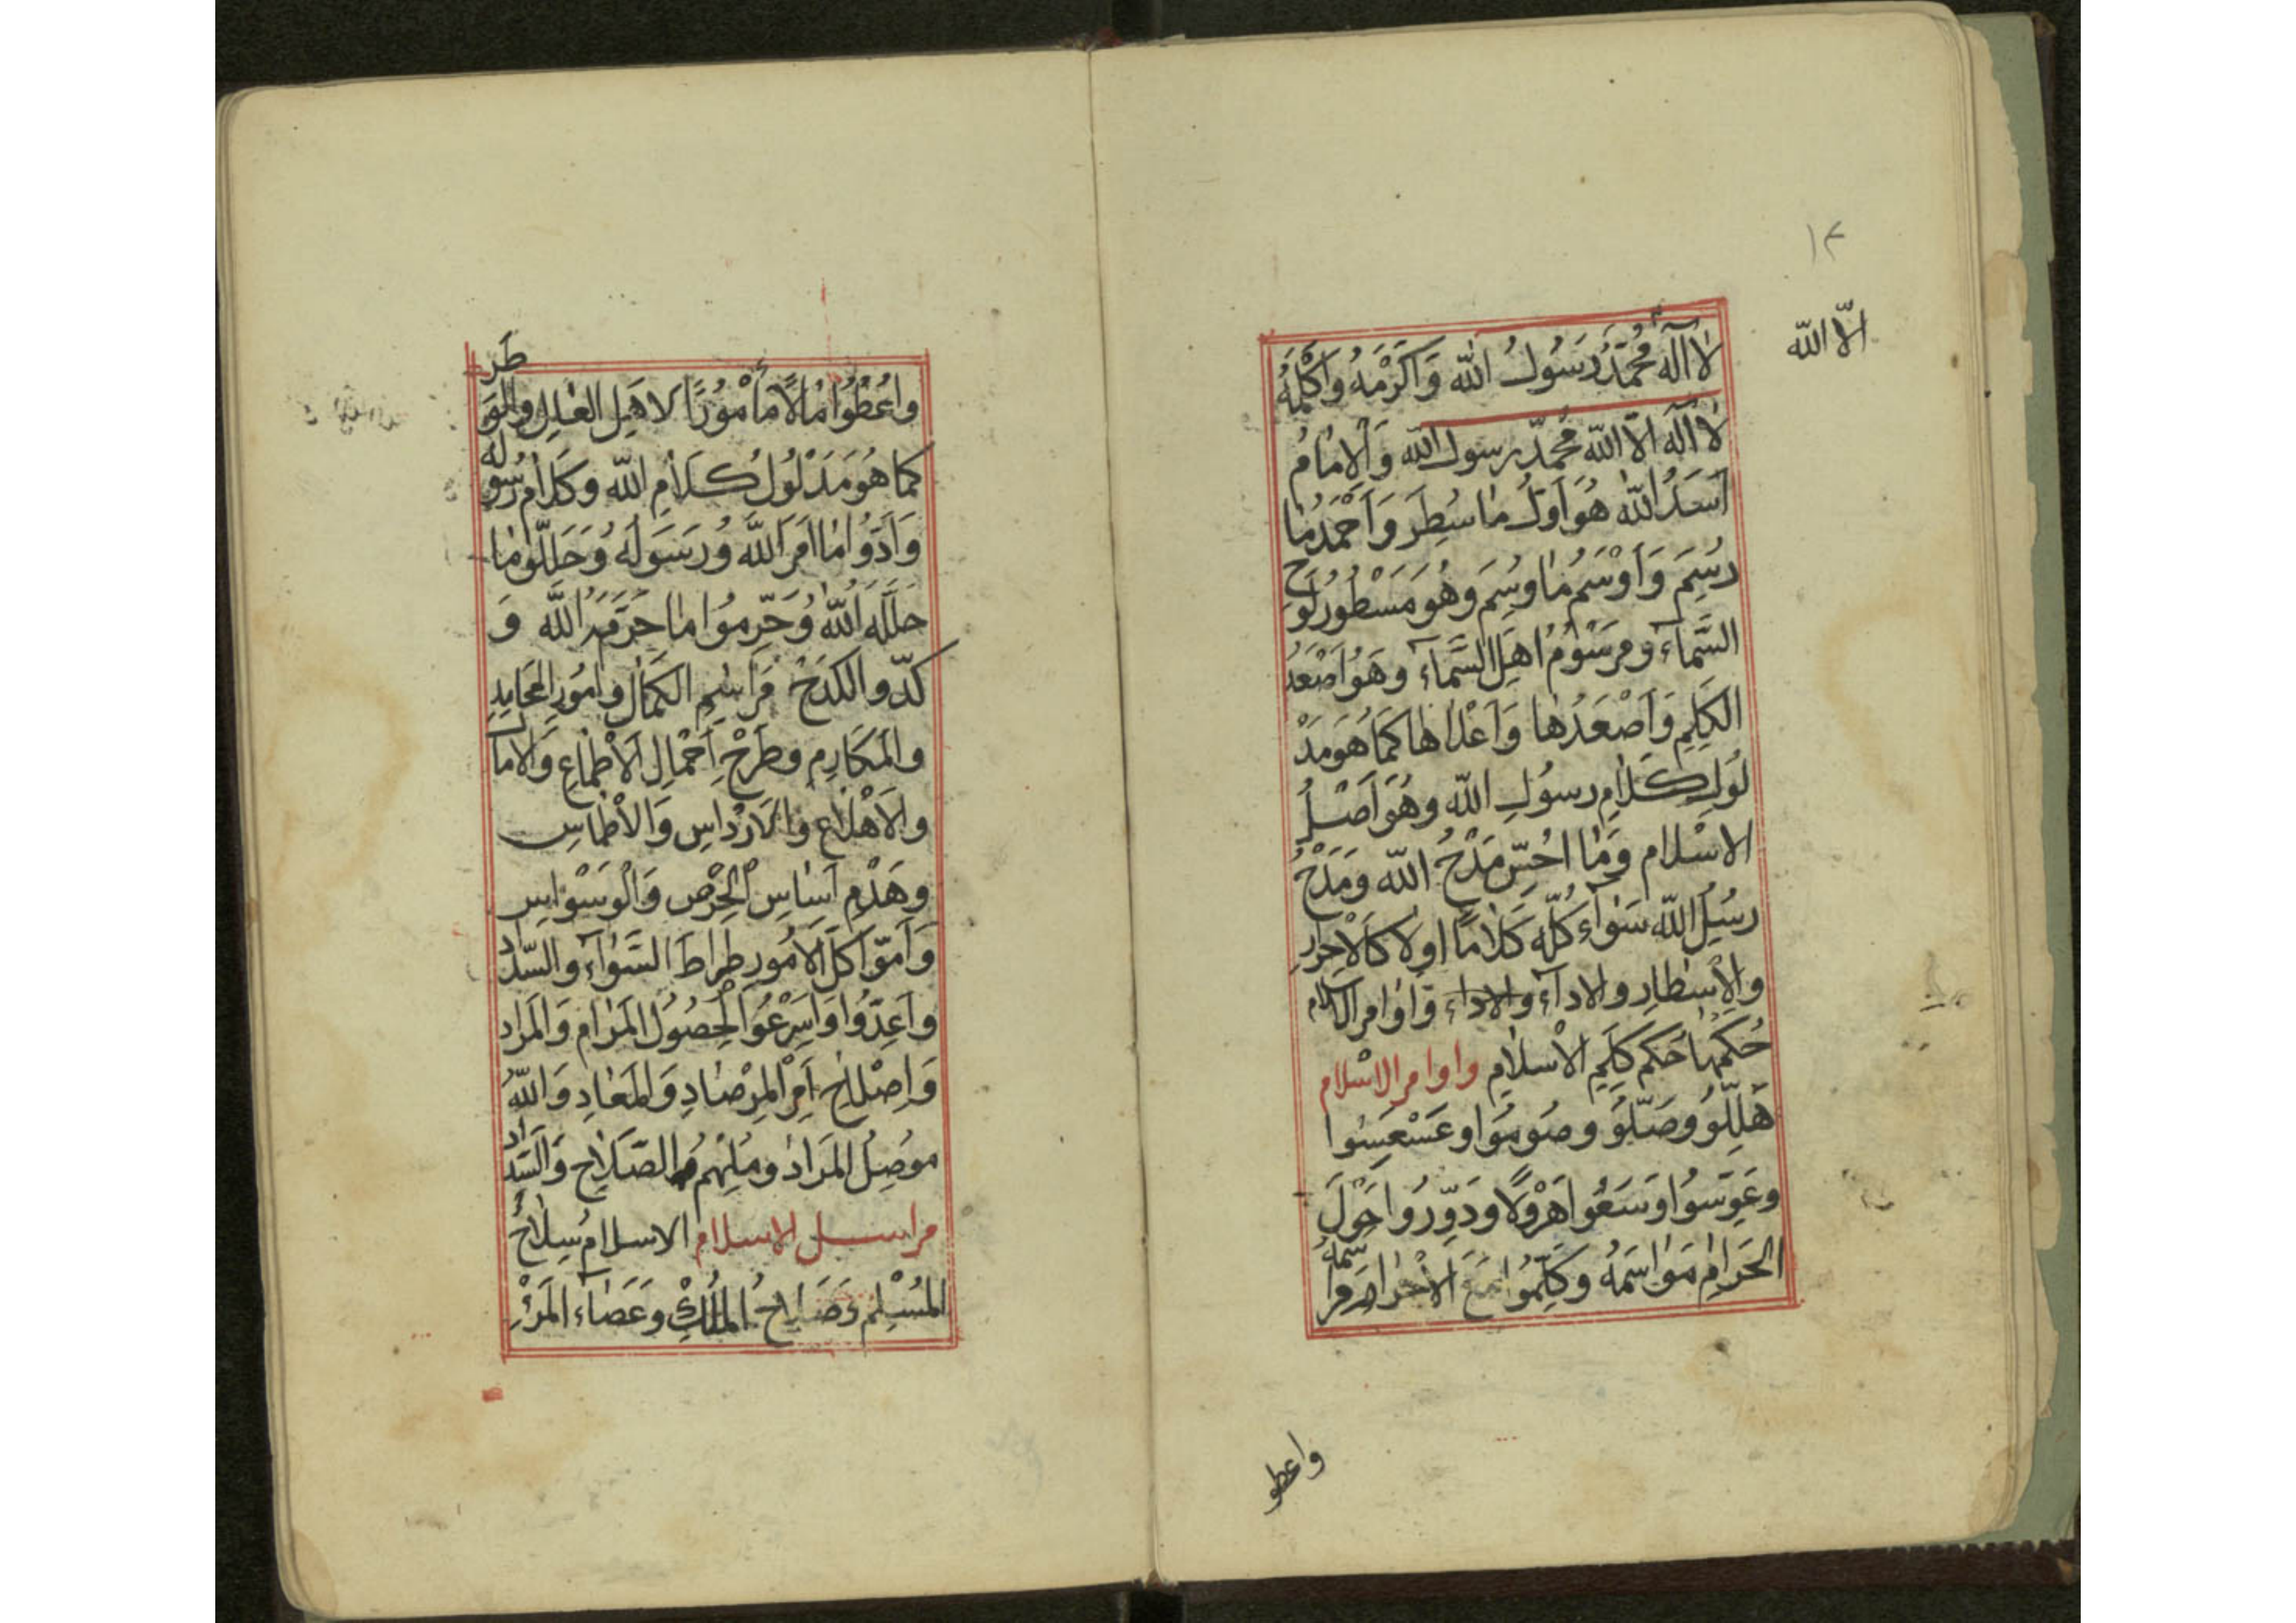 ١٣
الّا الله
لا اله محمّد رسول الله واكرمه واكلمه
لا اله الّا الله محمّد رسول الله والامام
اسعد الله هو اوّل ما سطر واحمد ما
رسم واوسم ما وسم وهو مسطور لوح
السّماء ومرسوم اهل السّماء وهو اصعد
الكلم واصعدها واعلاها كما هو مد
لول كلام رسول الله وهو اصل
الاسلام وما احسّ مدح الله ومدح
رسل الله سواء كلّه كلاما اولا كالاحرار
والاسطار والاداء والاداء واوامر الكلام
حكمها حكم كلم الاسلام واوامر الاسلام
هلّلو وصلّو وصوموا وعسعسوا
وعوّسوا وسعوا هرولا ودوّروا حول
الحرام مواسمه وكلّموا مع الاحرام مراسمه
واعطو
واعطوا مالا مأمورا لاهل العلل والوطر
كما هو مدلول كلام الله وكلام رسوله
وادّوا ما امر الله ورسوله وحلّلوا ما
حلّله الله وحرّموا ما حرّمه الله و
كدّوا الكدح مراسم الكمال وامور المحامد
والمكارم وطرح احمال الاطماع والامال
والاهلاع والارداس والاطماس
وهدم اساس الحرص والوسواس
وامّوا كلّ الامور صراط السّواء والسّداد
واعدّوا واسرعوا لحصول المرام والمراد
واصلاح امر المرصاد والمعاد والله
موصل المراد وملهم الصّلاح والسّداد
مراسل الاسلام الاسلام سلاح
المسلم وصلاح الملك وعصاء المرء